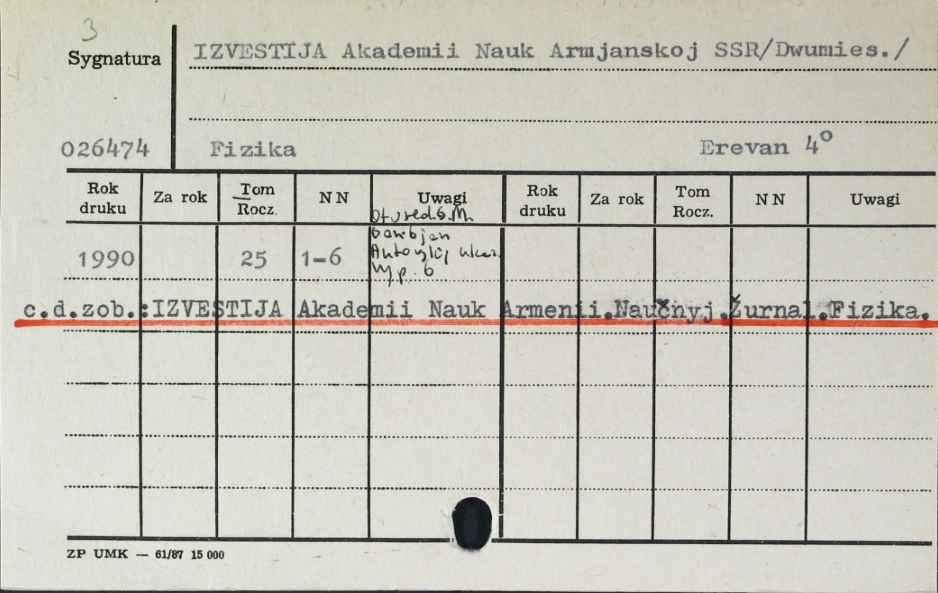 3
Sygnatura
IZVESTIJA Akademii Nauk Armjanskoj SSR/Dwumies./
026474 Fizika Erevan 4⁰
Rok druku Za rok Tom Rocz. NN Uwagi Rok druku Za rok Tom Rocz. NN Uwagi
1990 25 1-6
Wyp. 6
c.d.zob.:IZVESTIJA Akademii Nauk Armenii.Naučnyj.Žurnal.Fizika.
ZP UMK — 61/87 15 000